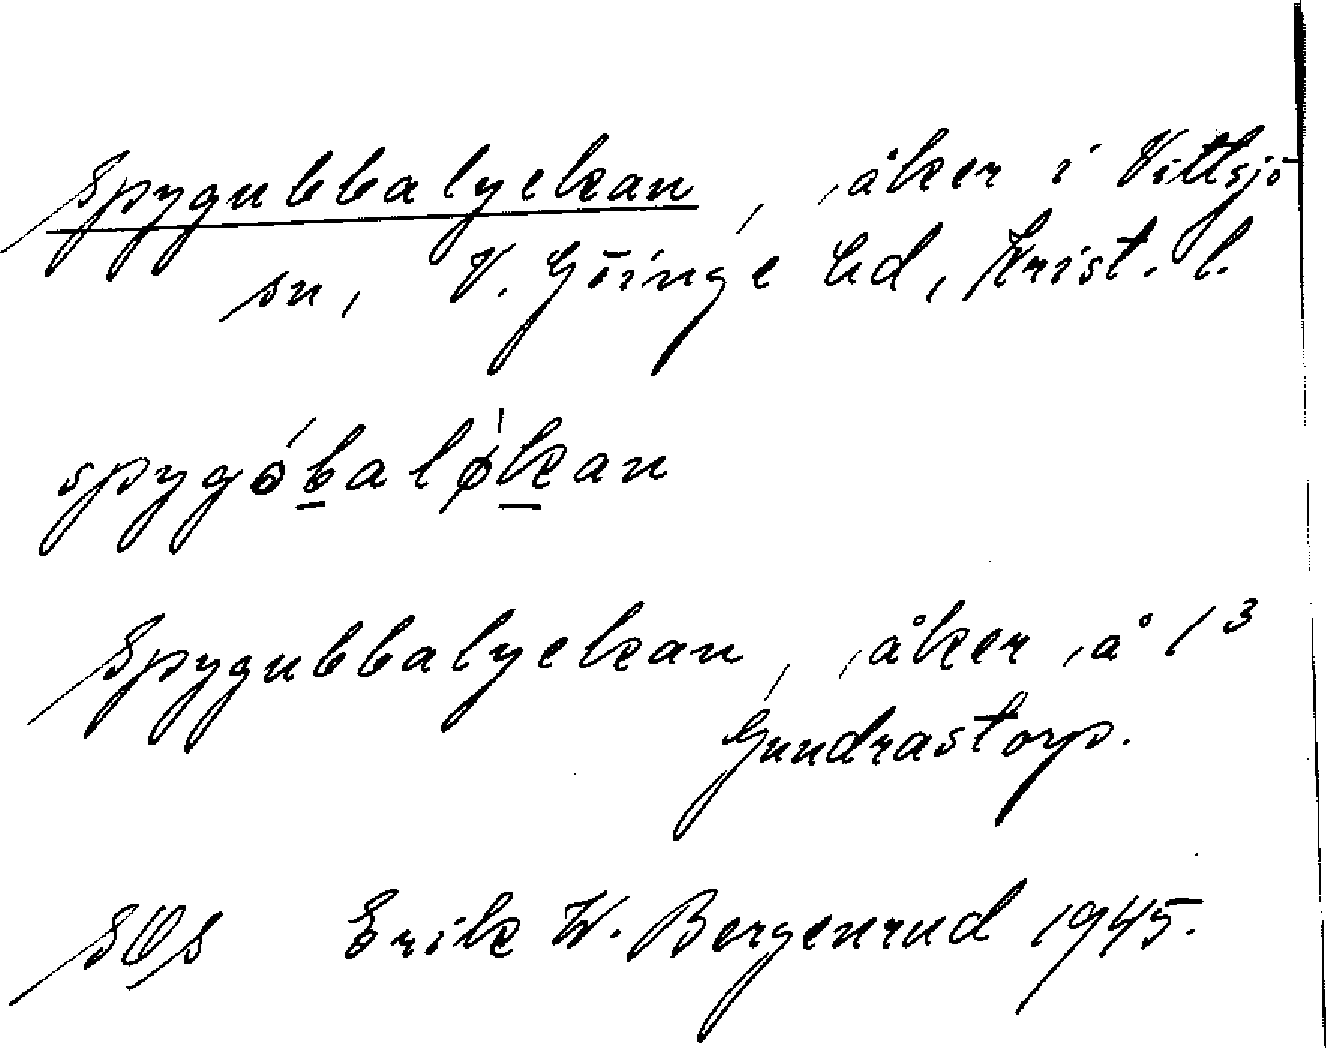 Spygubbalyckan, åker i Vittsjö
sn, V. Göinge hd, Krist. l.
spygóbalø̍kan
Spygubbalyckan, åker å 1³
Gundrastorp.
SOS Erik W. Bergenrud 1945.